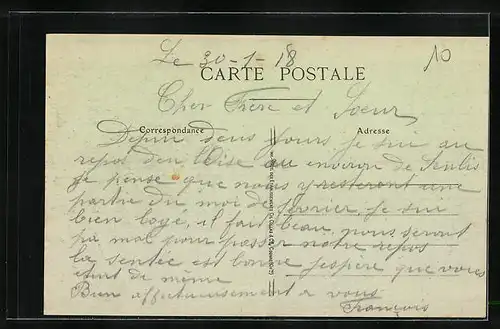 Le 30-1-18
10
CARTE POSTALE
Cher Frère et Soeur
Correspondance
Adresse
Depui deus jours je sui au
repos den l'Oise au environ de Senlis
je pense que nous y resteront une
partie du moi de fevrier, je sui
bien logé, il fait beau, nous seront
pa mal pour passer notre repos
la sentée est bonne j'espère que vous
etut de même
Bien affectueusement a vous
François